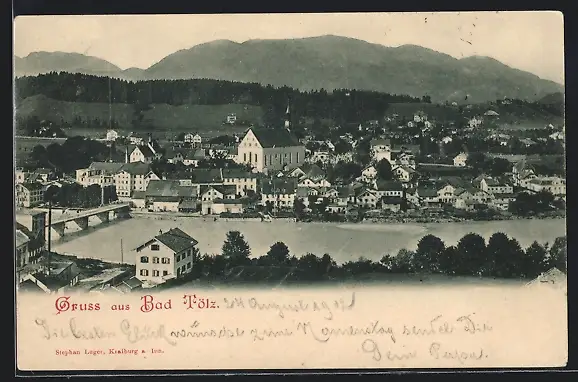 Gruss aus Bad Tölz. 24 August 1902
Die besten Glückwünsche zum Namenstag sendet Dir
Dein Papa.
Stephan Luger, Kraiburg a. Inn.